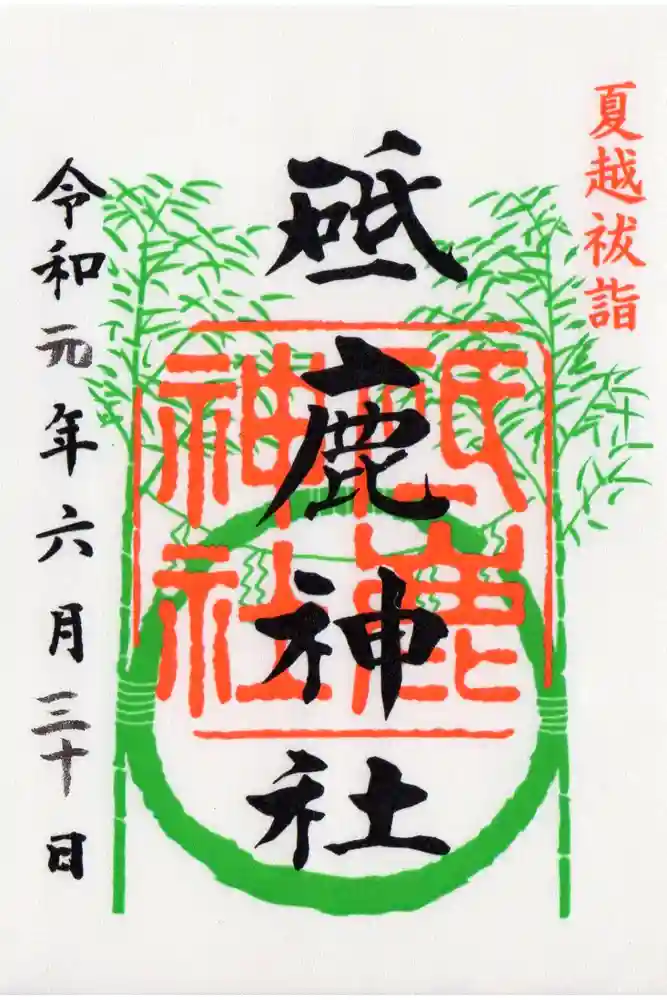 夏越祓詣
砥鹿神社
砥鹿神社
令和元年六月三十日